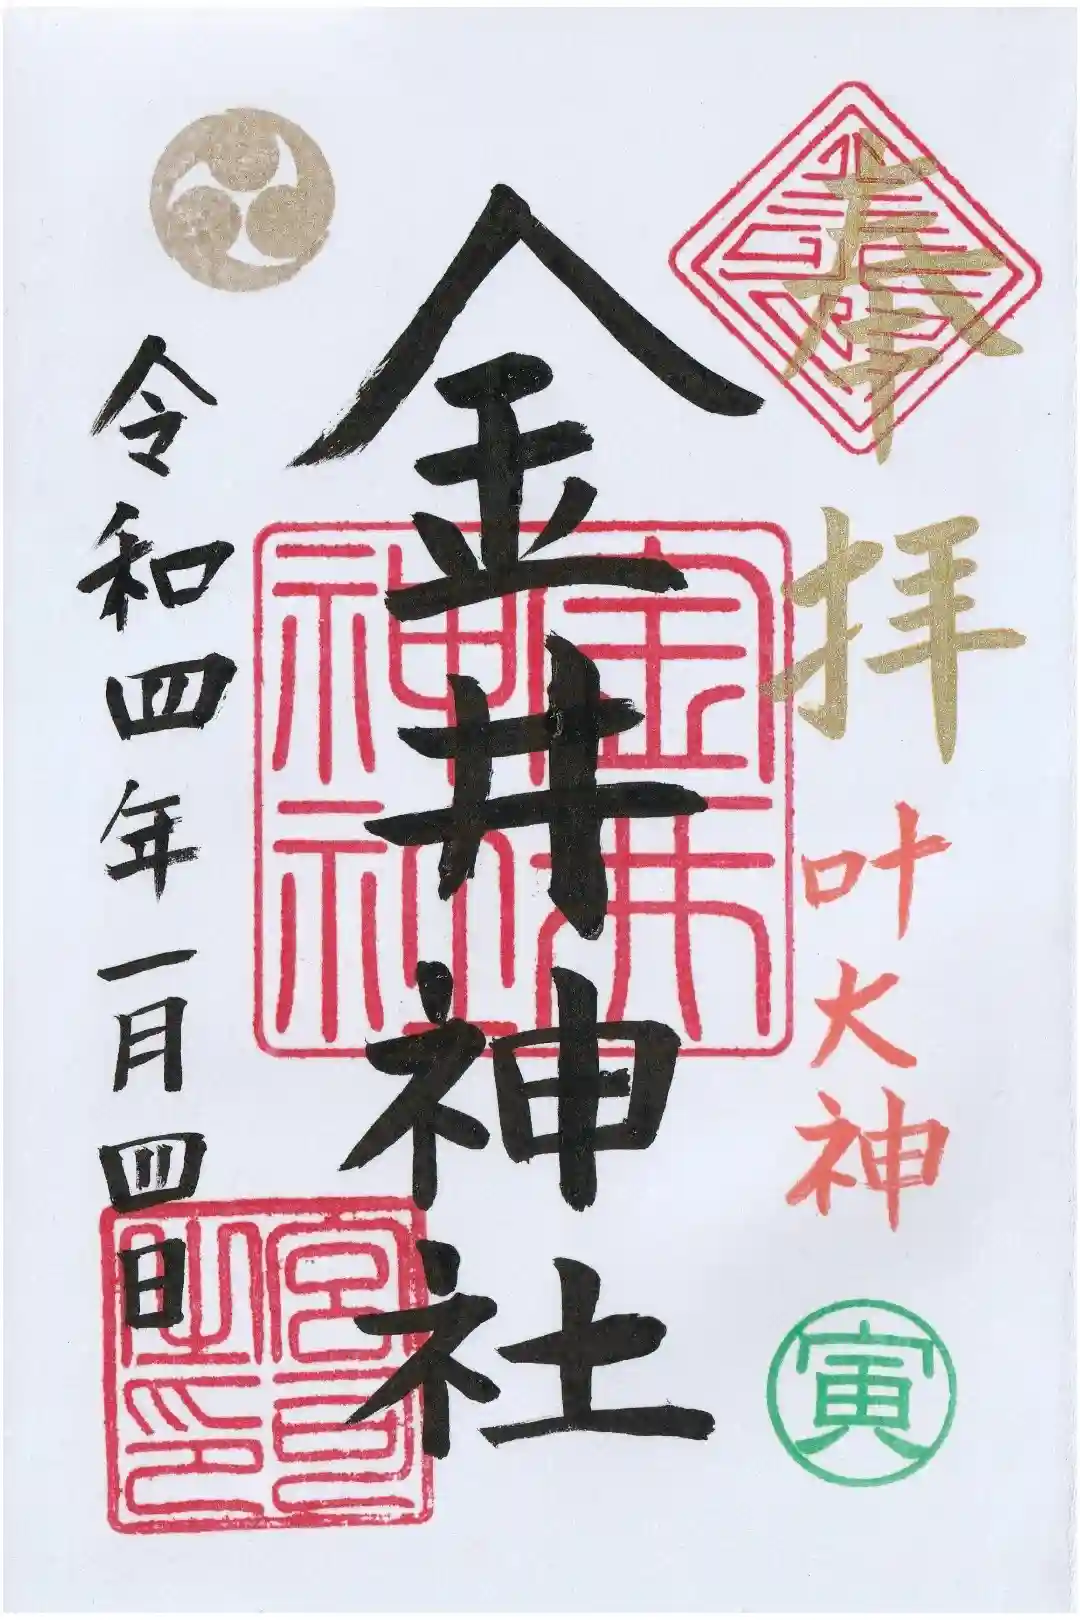 奉拝
叶大神
寅
金井神社
金井
神社
令和四年一月四日
宮司
之印